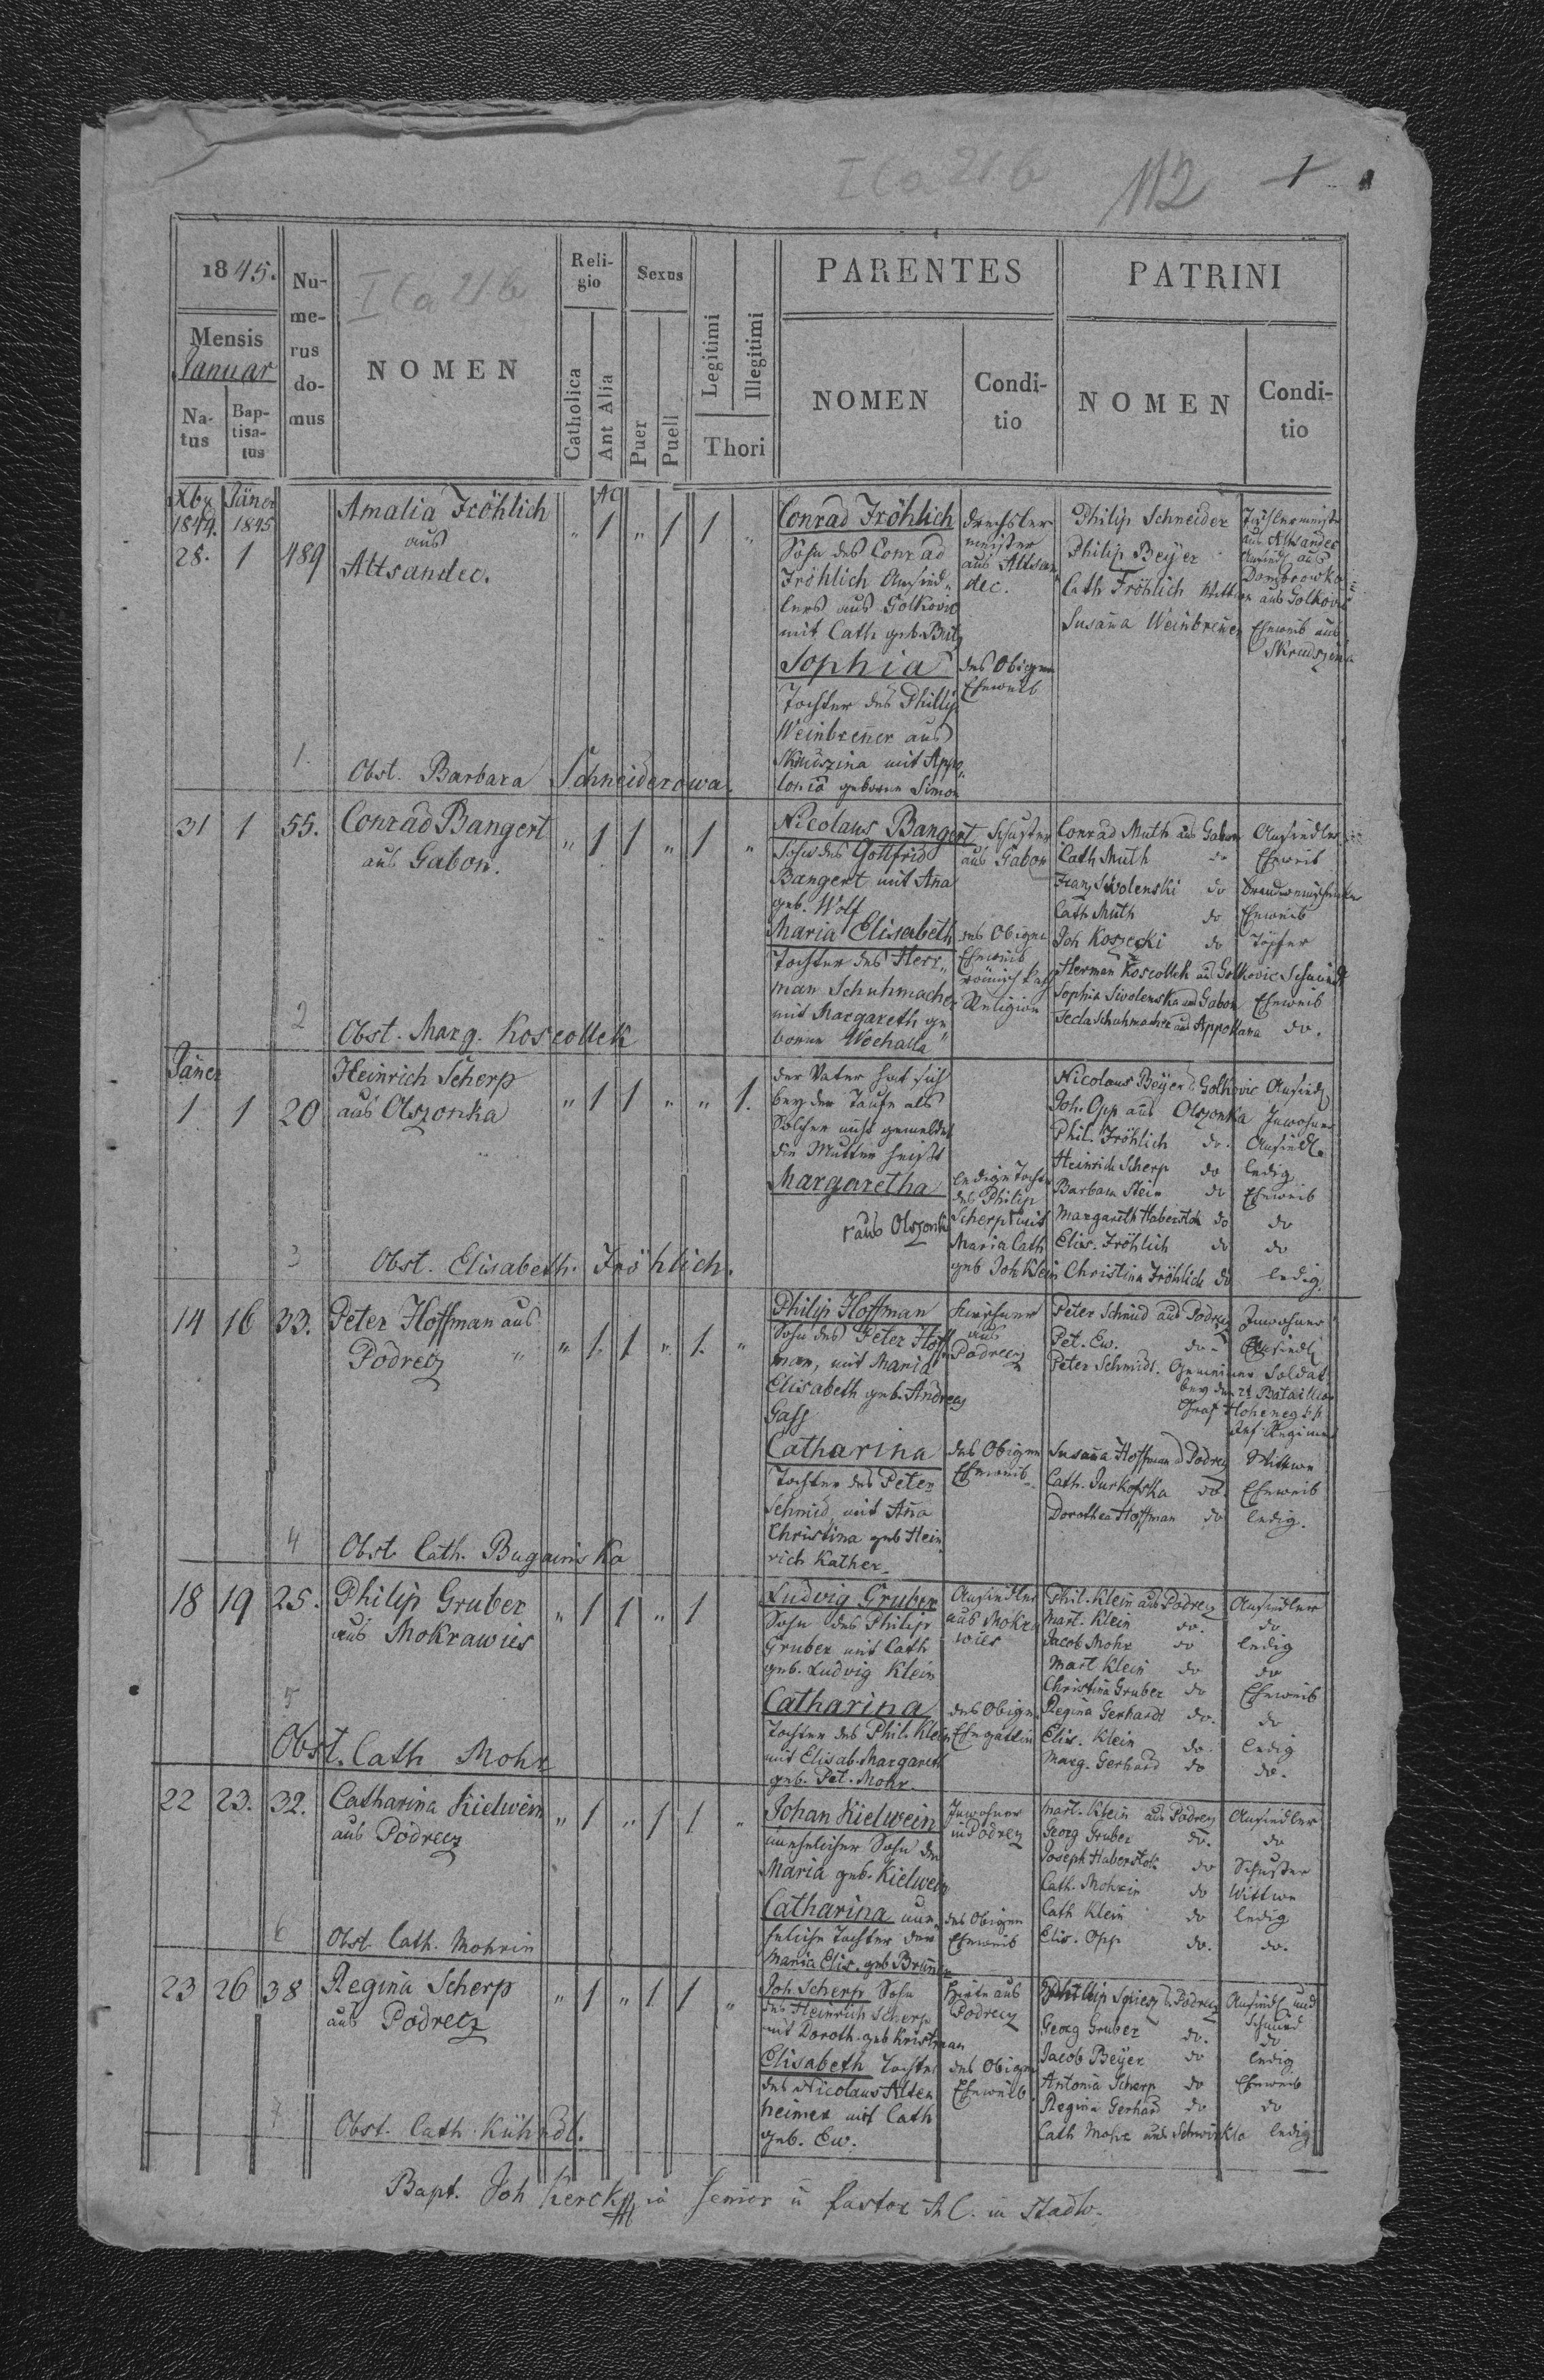 I Ca 21 b
112
1
1845.
Mensis
Januar
Na-
tus
Bap-
tisa-
tus
Nu-
me-
rus
do-
mus
I Ca 21 b
NOMEN
Reli-
gio
Catholica
Aut Alia
Sexus
Puer
Puell
Legitimi
Illegitimi
Thori
PARENTES
NOMEN
Condi-
tio
PATRINI
NOMEN
Condi-
tio
Xbr
1844.
28.
Jäner
1845
1
489
Amalia Fröhlich
aus
Altsandec.
AC
" 1 " 1 1 "
Conrad Fröhlich
Sohn des Conrad
Fröhlich Ansied„
lers aus Golkovic
mit Cath geb. Butz
Drechsler
meister
aus Altsan
dec.
Sophia
Tochter des Phillip
Weinbrener aus
mit Appo„
lonia geborne Simon
des Obigen
Eheweib
Philip Schneider
Philip Beÿer
Cath Fröhlich Wittwe aus Golkovic
Susana Weinbrener Eheweib aus
Tischlermeister
aus Altsandec
Ansiedl aus
Dombrowka
1.
Obst. Barbara Schneiderowa.
31 1 55.
Conrad Bangert
aus Gabon.
" 1 1 " 1 "
Nicolaus Bangert
Sohn des Gottfried
Bangert mit Ana
geb. Wolf
Schuster
aus Gabon
Maria Elisabeth
Tochter des Herr„
man Schuhmacher
mit Margareth ge„
borne Wochalla
des Obigen
Eheweib
römisch kath
Religion
Conrad Muth aus Gabon Ansiedler
Cath Muth do Eheweib
Franz Siwolenski do
Cath Muth do Eheweib
Joh Koszecki do Töpfer
Herman Koscollek aus Golkovic Schmied
Sophia Siwolenska aus Gabon Eheweib
Tecla Schuhmacher aus Appollana do.
2
Obst. Marg. Koscollek
Jäner
1 1 20
Heinrich Scherp
aus Olszonka
" 1 1 " " 1.
der Vater hat sich
bey der Taufe als
Solcher nicht gemeldet
die Mutter heißt
Margaretha
aus Olszonka
ledige Tochter
des Philip
Scherp mit
Maria Cath
geb Joh Klein
Nicolaus Beÿer Golkovic Ansiedl
Joh. Opp aus Olszonka Inwohner
Phil. Fröhlich do. Ansiedler
Heinrich Scherp do ledig
Barbara Stein do Eheweib
Margareth Haberstok do do
Elis. Fröhlich do do
Christina Fröhlich do ledig.
3
Obst. Elisabeth. Fröhlich.
14 16 33.
Peter Hoffman aus
Podrecz
" 1. 1 " 1. "
Philip Hoffman
Sohn des Peter Hoff
man, mit Maria
Elisabeth geb. Andreas
Gass
aus
Podrecz
Catharina
Tochter des Peter
Schmid mit Ana
Christina geb Hein
rich Kather.
des Obigen
Eheweib.
Peter Schmid aus Podrecz Inwohner
Pet. Ew. do. Ansiedl
Peter Schmidt. Gemeiner Soldat
bey dem 2t Bataillon
Graf Hohenegg
Inf. Regiment
Susana Hoffman Podrecz Wittwe
Cath. Jurkofska do. Eheweib
Dorothea Hoffman do ledig.
4
Obst. Cath. Bugainska
18 19 25.
Philip Gruber
aus Mokrawies
" 1 1 " 1
Ludvig Gruber
Sohn des Philip
Gruber mit Cath
geb. Ludvig Klein
Ansiedler
aus Mokra
wies
Catharina
Tochter des Phil. Klein
mit Elisab. Margareth
geb. Pet. Mohr.
des Obigen
Ehegattin
Phil. Klein aus Podrecz Ansiedler
Mart. Klein do. do.
Jacob Mohr do ledig
Mart Klein do do
Christina Gruber do Eheweib
Regina Gerhardt do. do
Elis. Klein do. ledig
Marg. Gerhard do do.
5
Obst. Cath Mohr
22 23. 32.
Catharina Kielwein
aus Podrecz
" 1 " 1 1 "
Johan Kielwein
unehelicher Sohn der
Maria geb. Kielwein
Inwohner
in Podrecz
Catharina une„
heliche Tochter der
Maria Elis. geb Brunner
des Obigen
Eheweib
Mart. Klein aus Podrecz Ansiedler
Georg Gruber do. do
Joseph Haberstok do Schuster
Cath. Mohrin do Wittwe
Cath Klein do ledig
Elis. Opp do. do.
6
Obst. Cath. Mohrin
23 26 38
Regina Scherp
aus Podrecz
" 1 " 1 1 "
Joh. Scherp Sohn
des Heinrich Scherp
mit Doroth. geb Kristman
Hirte aus
Podrecz
Elisabeth Tochter
des Nicolaus Alten
heimer mit Cath
geb. Ew.
des Obigen
Eheweib.
Phillip Spiesz Podrecz Ansiedl und
Schmied
Georg Gruber do. do
Jacob Beÿer do ledig
Antonia Scherp do Eheweib
Regina Gerhard do do
Cath Mohr aus Schwirkla ledig
7
Obst. Cath. Kühndl.
Bapt. Joh Kerck Senior u Pastor A C. in Stadlo.